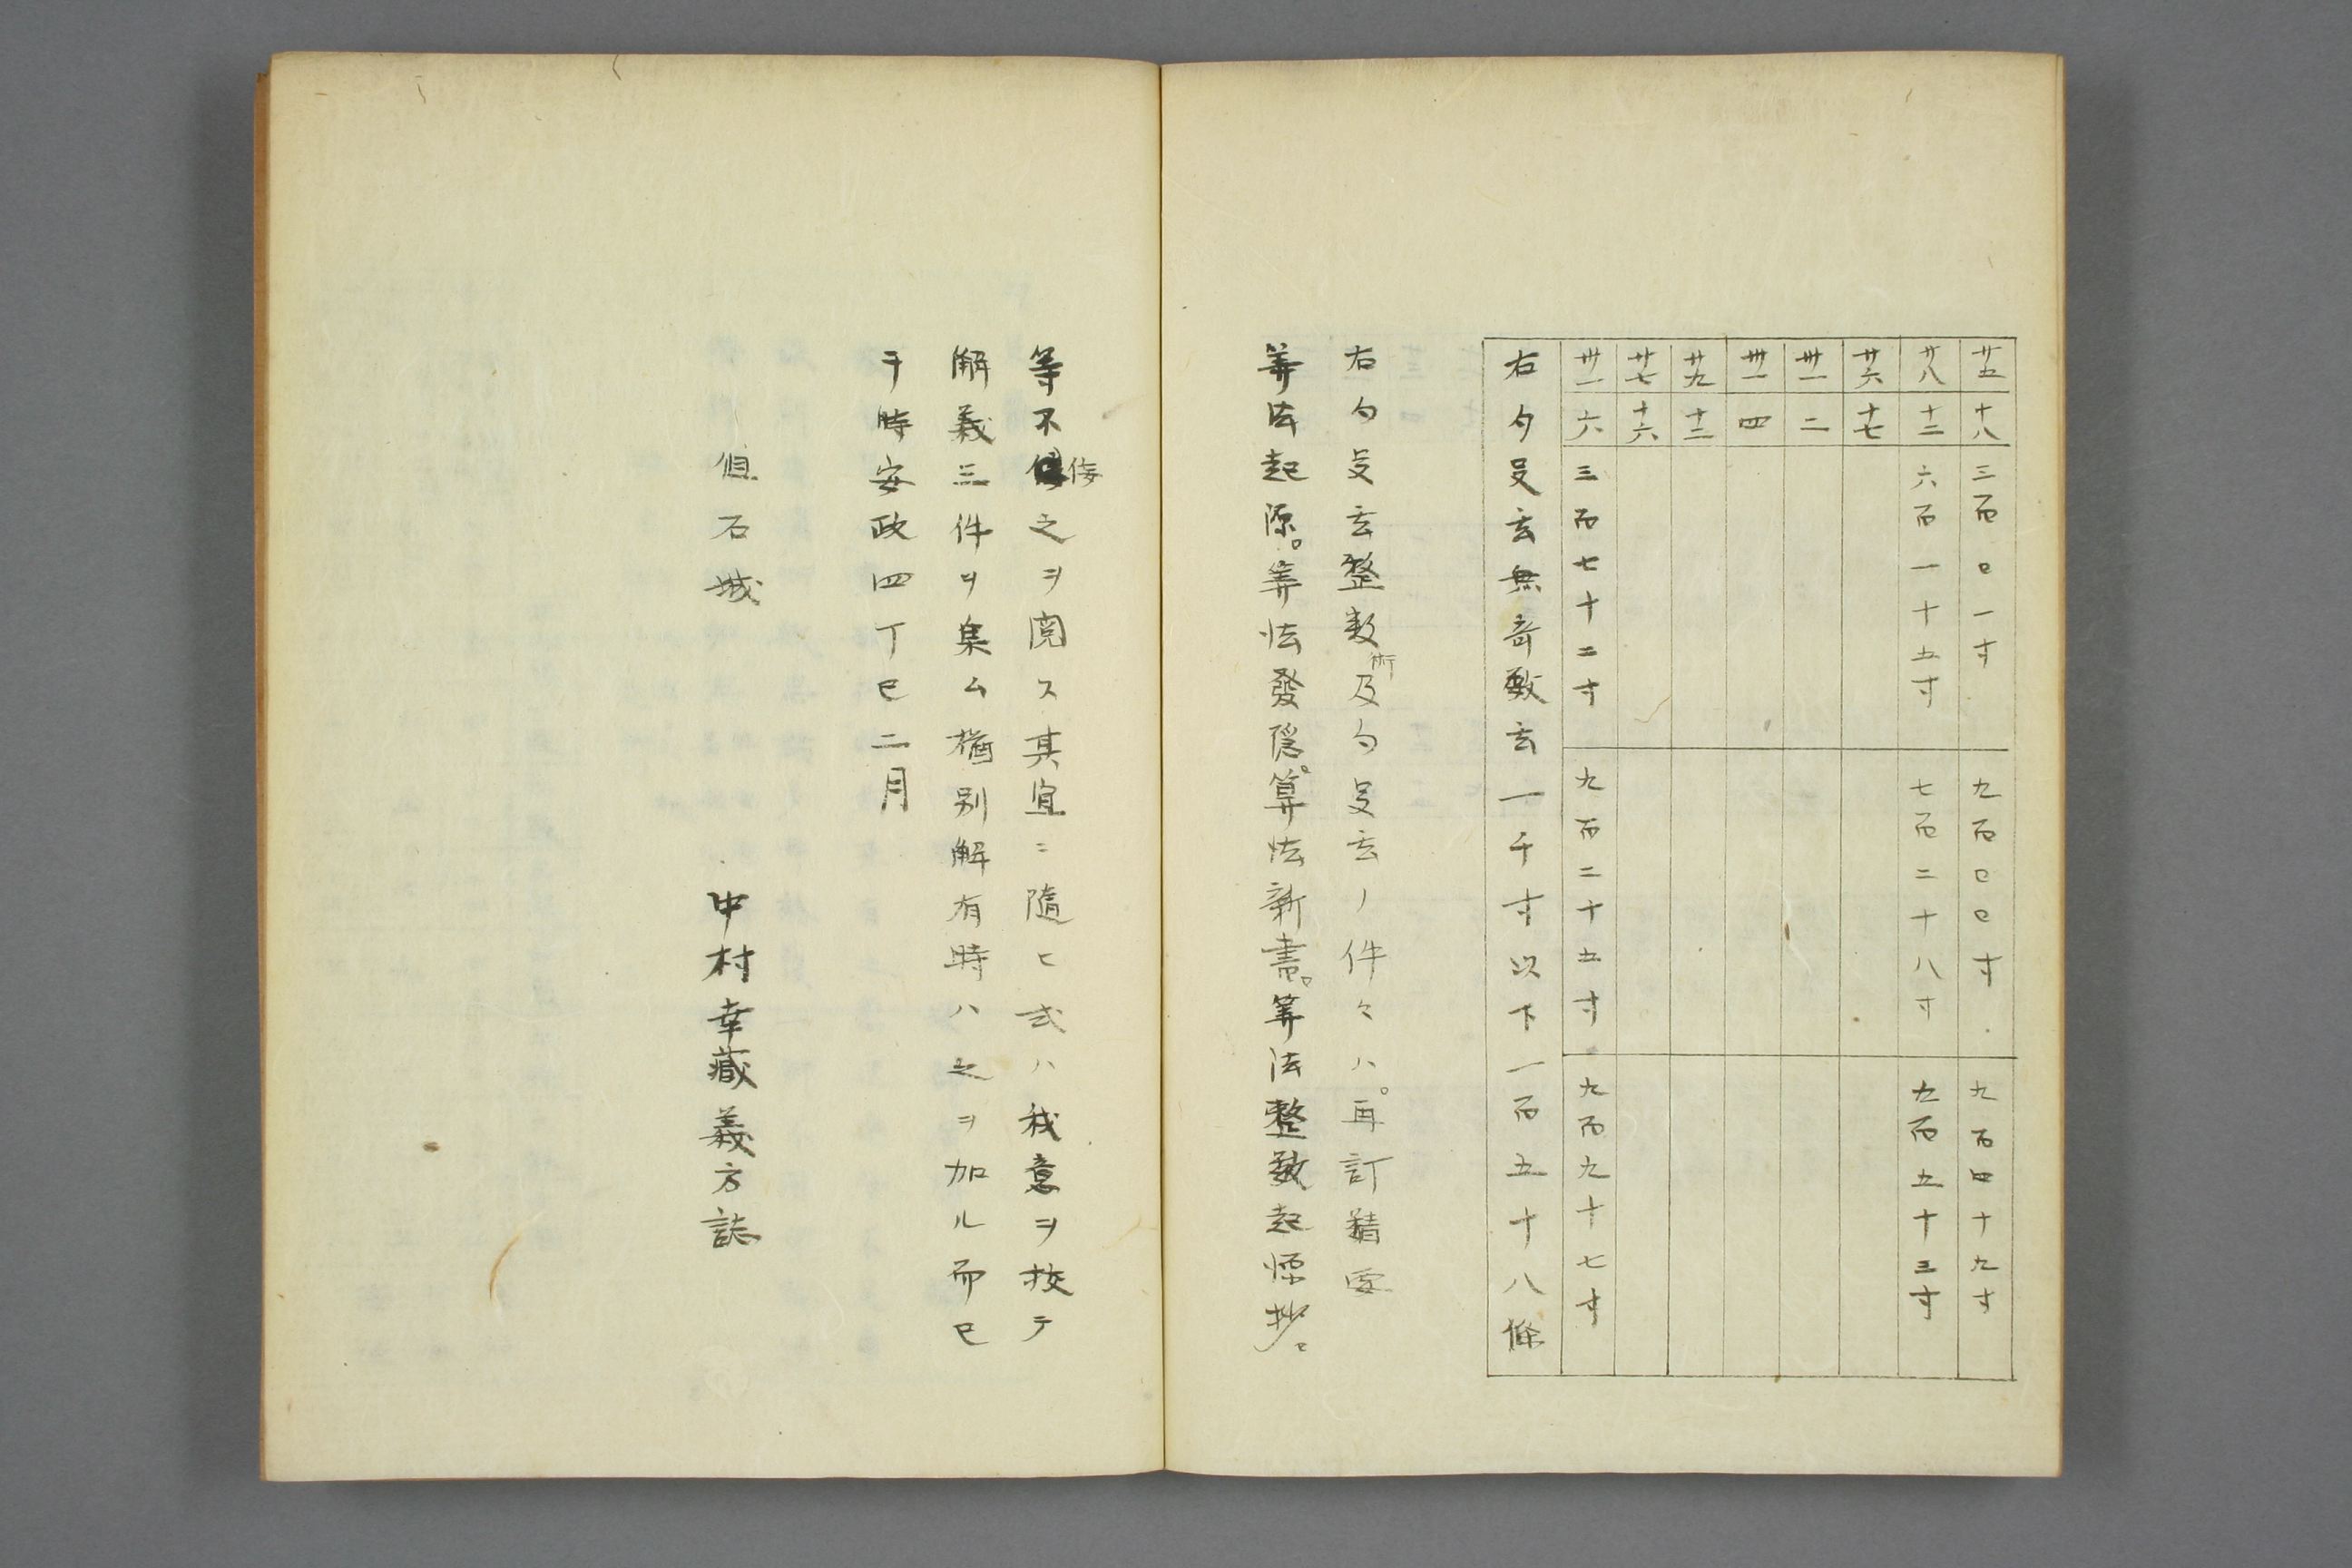 廿五 十八 三百〇一寸 九百〇〇寸 九百四十九寸
廿八 十二 六百一十五寸 七百二十八寸 九百五十三寸
廿六 十七
卅一 二
卅一 四
廿九 十二
廿七 十六
卅一 六 三百七十二寸 九百二十五寸 九百九十七寸
右勾殳玄無奇数玄一千寸以下一百五十八條
右勾殳玄整数術及勾殳玄ノ件々ハ。再訂精要
筭法起源。筭法發隠。算法新書。筭法整数起源抄。
等不侫之ヲ閲ス其宜ニ隨ヒ或ハ我意ヲ挍テ
解義三件ヲ集ム猶別解有時ハ之ヲ加ル而已
于時安政四丁巳二月
但石城
中村幸藏義方誌